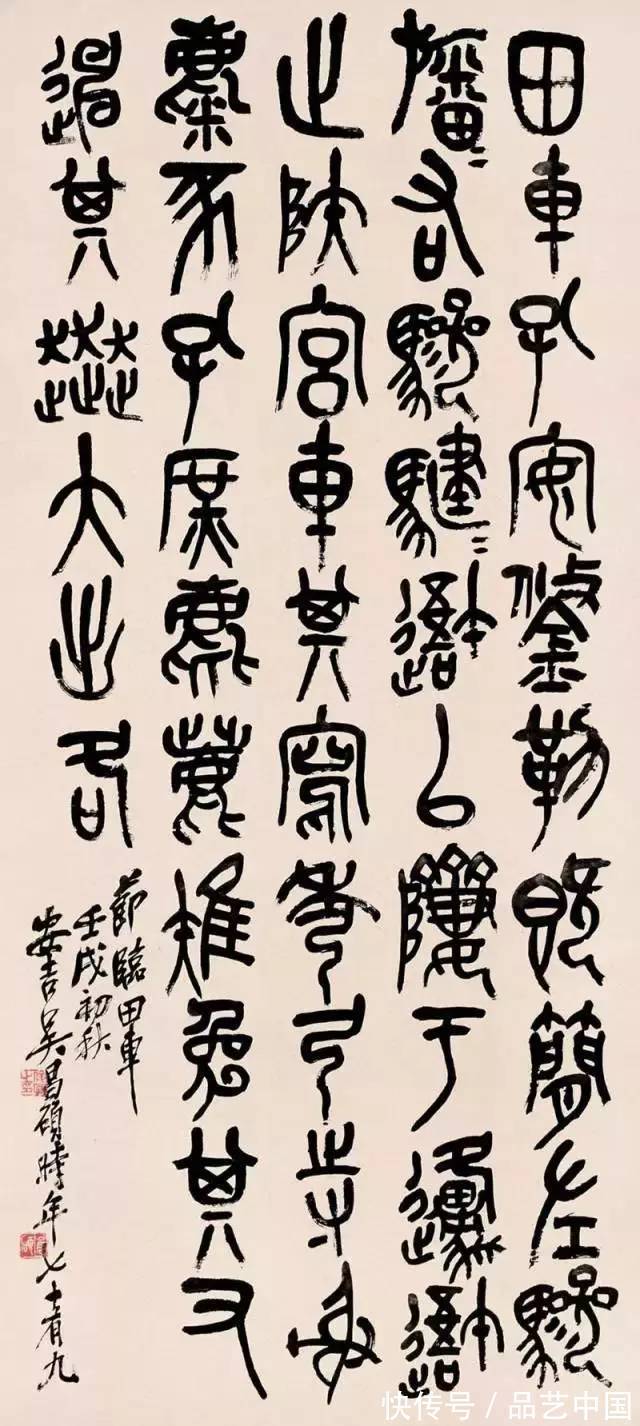 田車孔安鋚勒既簡左驂
旛=右驂騝=吾以隮于邍吾
止陝宮車其寫秀弓寺射
麋豕孔庶麀鹿雉兔其又
其奔大出各
節臨田車
壬戌初秋
安吉吳昌碩時年七十有九
快传号 / 品艺中国